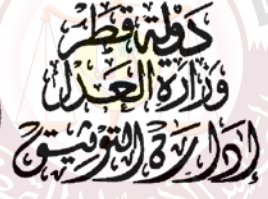 دَوْلَة قَطَر
وَزَارَة العَدْل
إدَارَة التَّوْثِيق